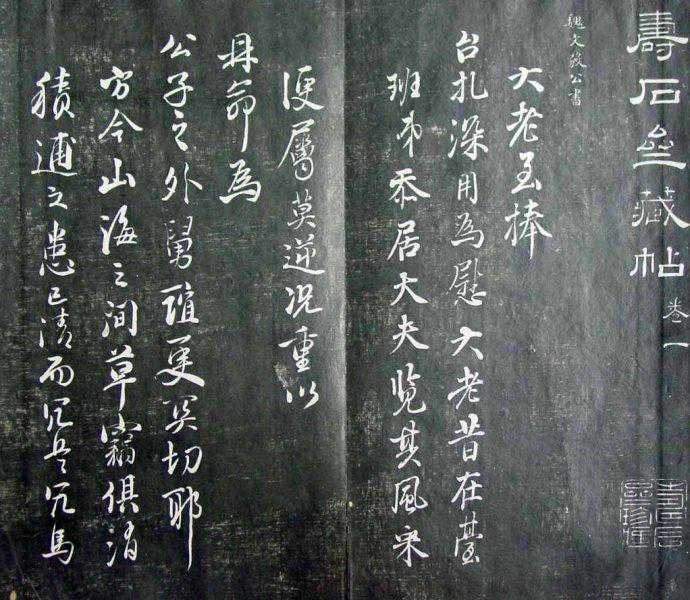 壽石亝藏帖 卷一
魏文毅公書
大老至捧
台扎深用為慰大老昔在臺
班弟忝居大夫覽其風采
便屬莫逆況重以
尋命為
公子之外舅誼更关切耶
方今山海之间草竊俱消
積逋之患已清而冗兵冗馬